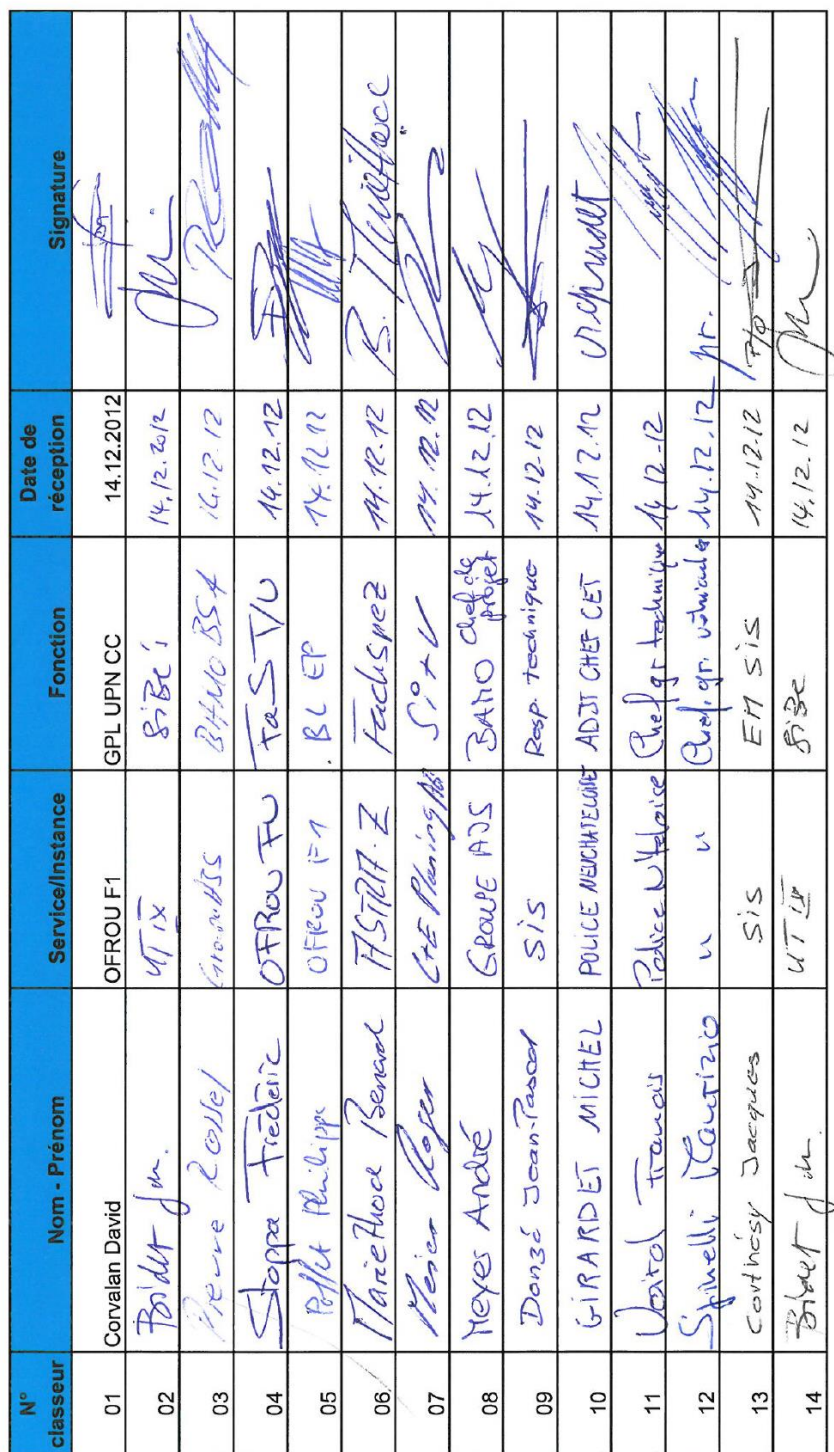 N° classeur Nom - Prénom Service/Instance Fonction Date de réception Signature
01 Corvalan David OFROU F1 GPL UPN CC 14.12.2012
02 UT IX SiBé 14.12.2012
03 Pierre Rossel 14.12.12
04 Stoppa Frédéric OFROU FU FaS T/U 14.12.12
05 Philippe OFROU F1 BL EP 14.12.12
06 Mariethod Bernard ASTRA-Z Fachspez 14.12.12 B. Mariethod
07 Meier Roger 14.12.12
08 Meyes André GROUPE AJS BAMO Chef de projet 14.12.12
09 Donzé Jean-Pascal SIS Resp. technique 14.12.12
10 GIRARDET MICHEL POLICE NEUCHATELOISE ADJT CHEF CET 14.12.12
11 Francis Police N'teloise Chef gr technique 14 12-12
12 Spinelli Maurizio " " Chef. gr. 14.12.12 pr.
13 Corthésy Jacques SIS EM SIS 14.12.12
14 UT IX SiBe 14.12.12